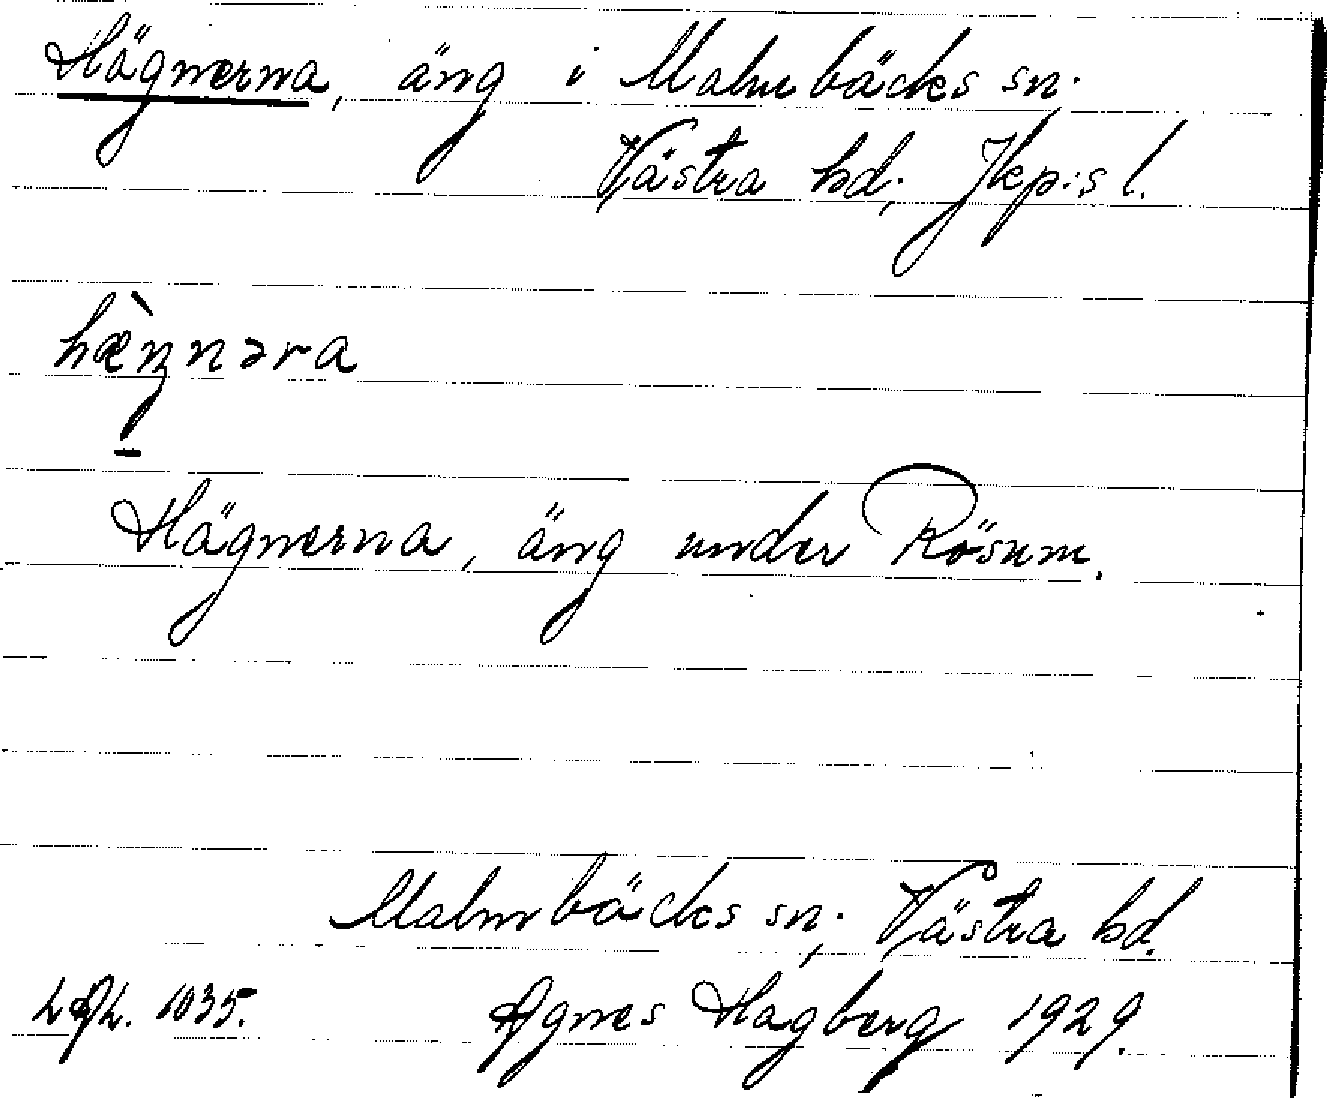 Hägnerna, äng i Malmbäcks sn.
Västra hd, Jkp:s l.
hæ̀ŋnəra
Hägnerna, äng under Rösum.
Malmbäcks sn, Västra hd.
1035. Agnes Hagberg 1929.